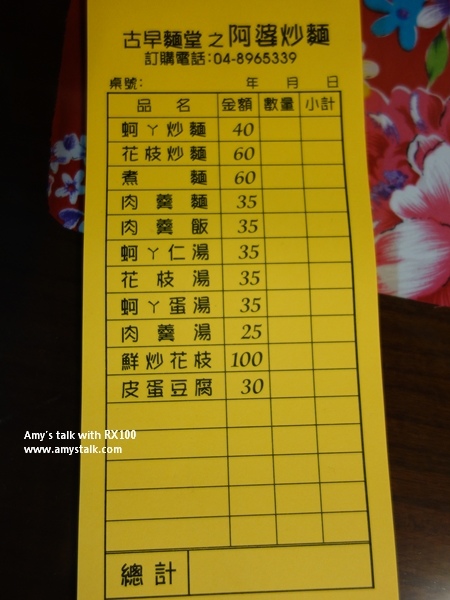 古早麵堂之阿婆炒麵
訂購電話:04-8965339
桌號: 年 月 日
品名 金額 數量 小計
蚵ㄚ炒麵 40
花枝炒麵 60
煮麵 60
肉羹麵 35
肉羹飯 35
蚵ㄚ仁湯 35
花枝湯 35
蚵ㄚ蛋湯 35
肉羹湯 25
鮮炒花枝 100
皮蛋豆腐 30
總計
Amy's talk with RX100
www.amystalk.com